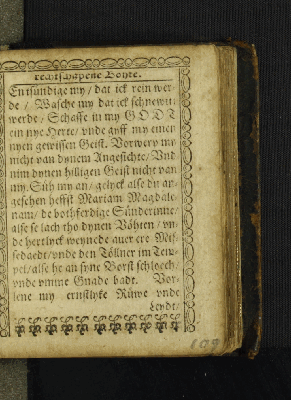 rechtschapene Bohte.
Entsündige my / dat ick rein wer-
de / Wasche my dat ick schnewit
werde / Schaffe in my GODT
ein nye Herte / vnde gyff my einen
nyen gewissen Geist. Vorwerp my
nicht van dynem Angesichte / Vnd
nim dynen hilligen Geist nicht van
my. Süh my an / gelyck alse du an-
gesehen heffst Mariam Magdale-
nam / de bothferdige Sünderinne /
alse se lach tho dynen Vöhten / vn-
de hertlyck weynede auer ere Mis-
sedaedt / vnde den Töllner im Tem-
pel / alse he an syne Borst schloech /
vnde vmme Gnade badt. Vor-
lene my ernstlyke Rüwe vnde
Leydt /
109